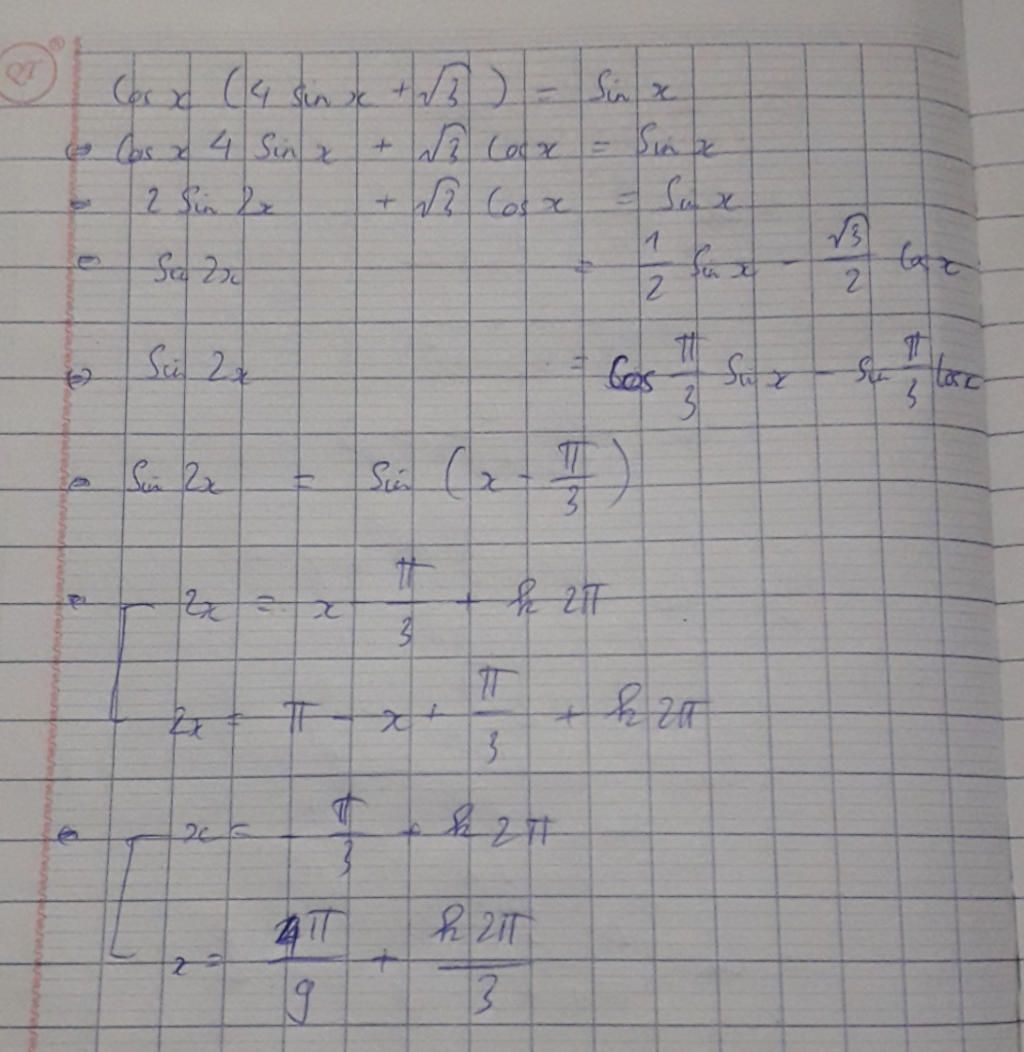 QT
Cos x (4 sin x + √3) = Sin x
⇔ Cos x 4 Sin x + √3 Cos x = Sin x
⇔ 2 Sin 2x + √3 Cos x = Sin x
⇔ Sin 2x = 1/2 Sin x - √3/2 Cos x
⇔ Sin 2x = Cos π/3 Sin x - Sin π/3 Cos x
⇔ Sin 2x = Sin (x - π/3)
⇔ [ 2x = x - π/3 + k2π
2x = π - x + π/3 + k2π
⇔ [ x = - π/3 + k2π
x = 4π/9 + k2π/3